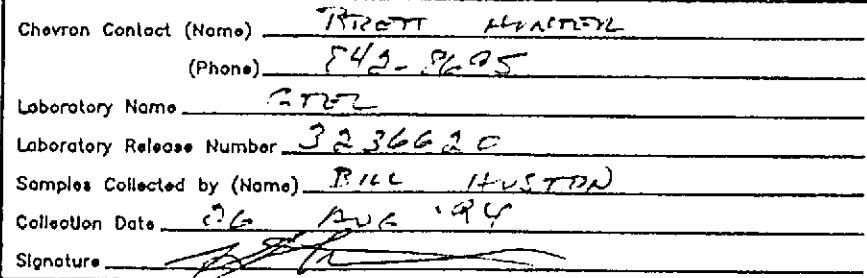 Chevron Contact (Name) BRETT HUNTER
(Phone) 842-8695
Laboratory Name GTEL
Laboratory Release Number 3236620
Samples Collected by (Name) BILL HUSTON
Collection Date 26 AUG '94
Signature